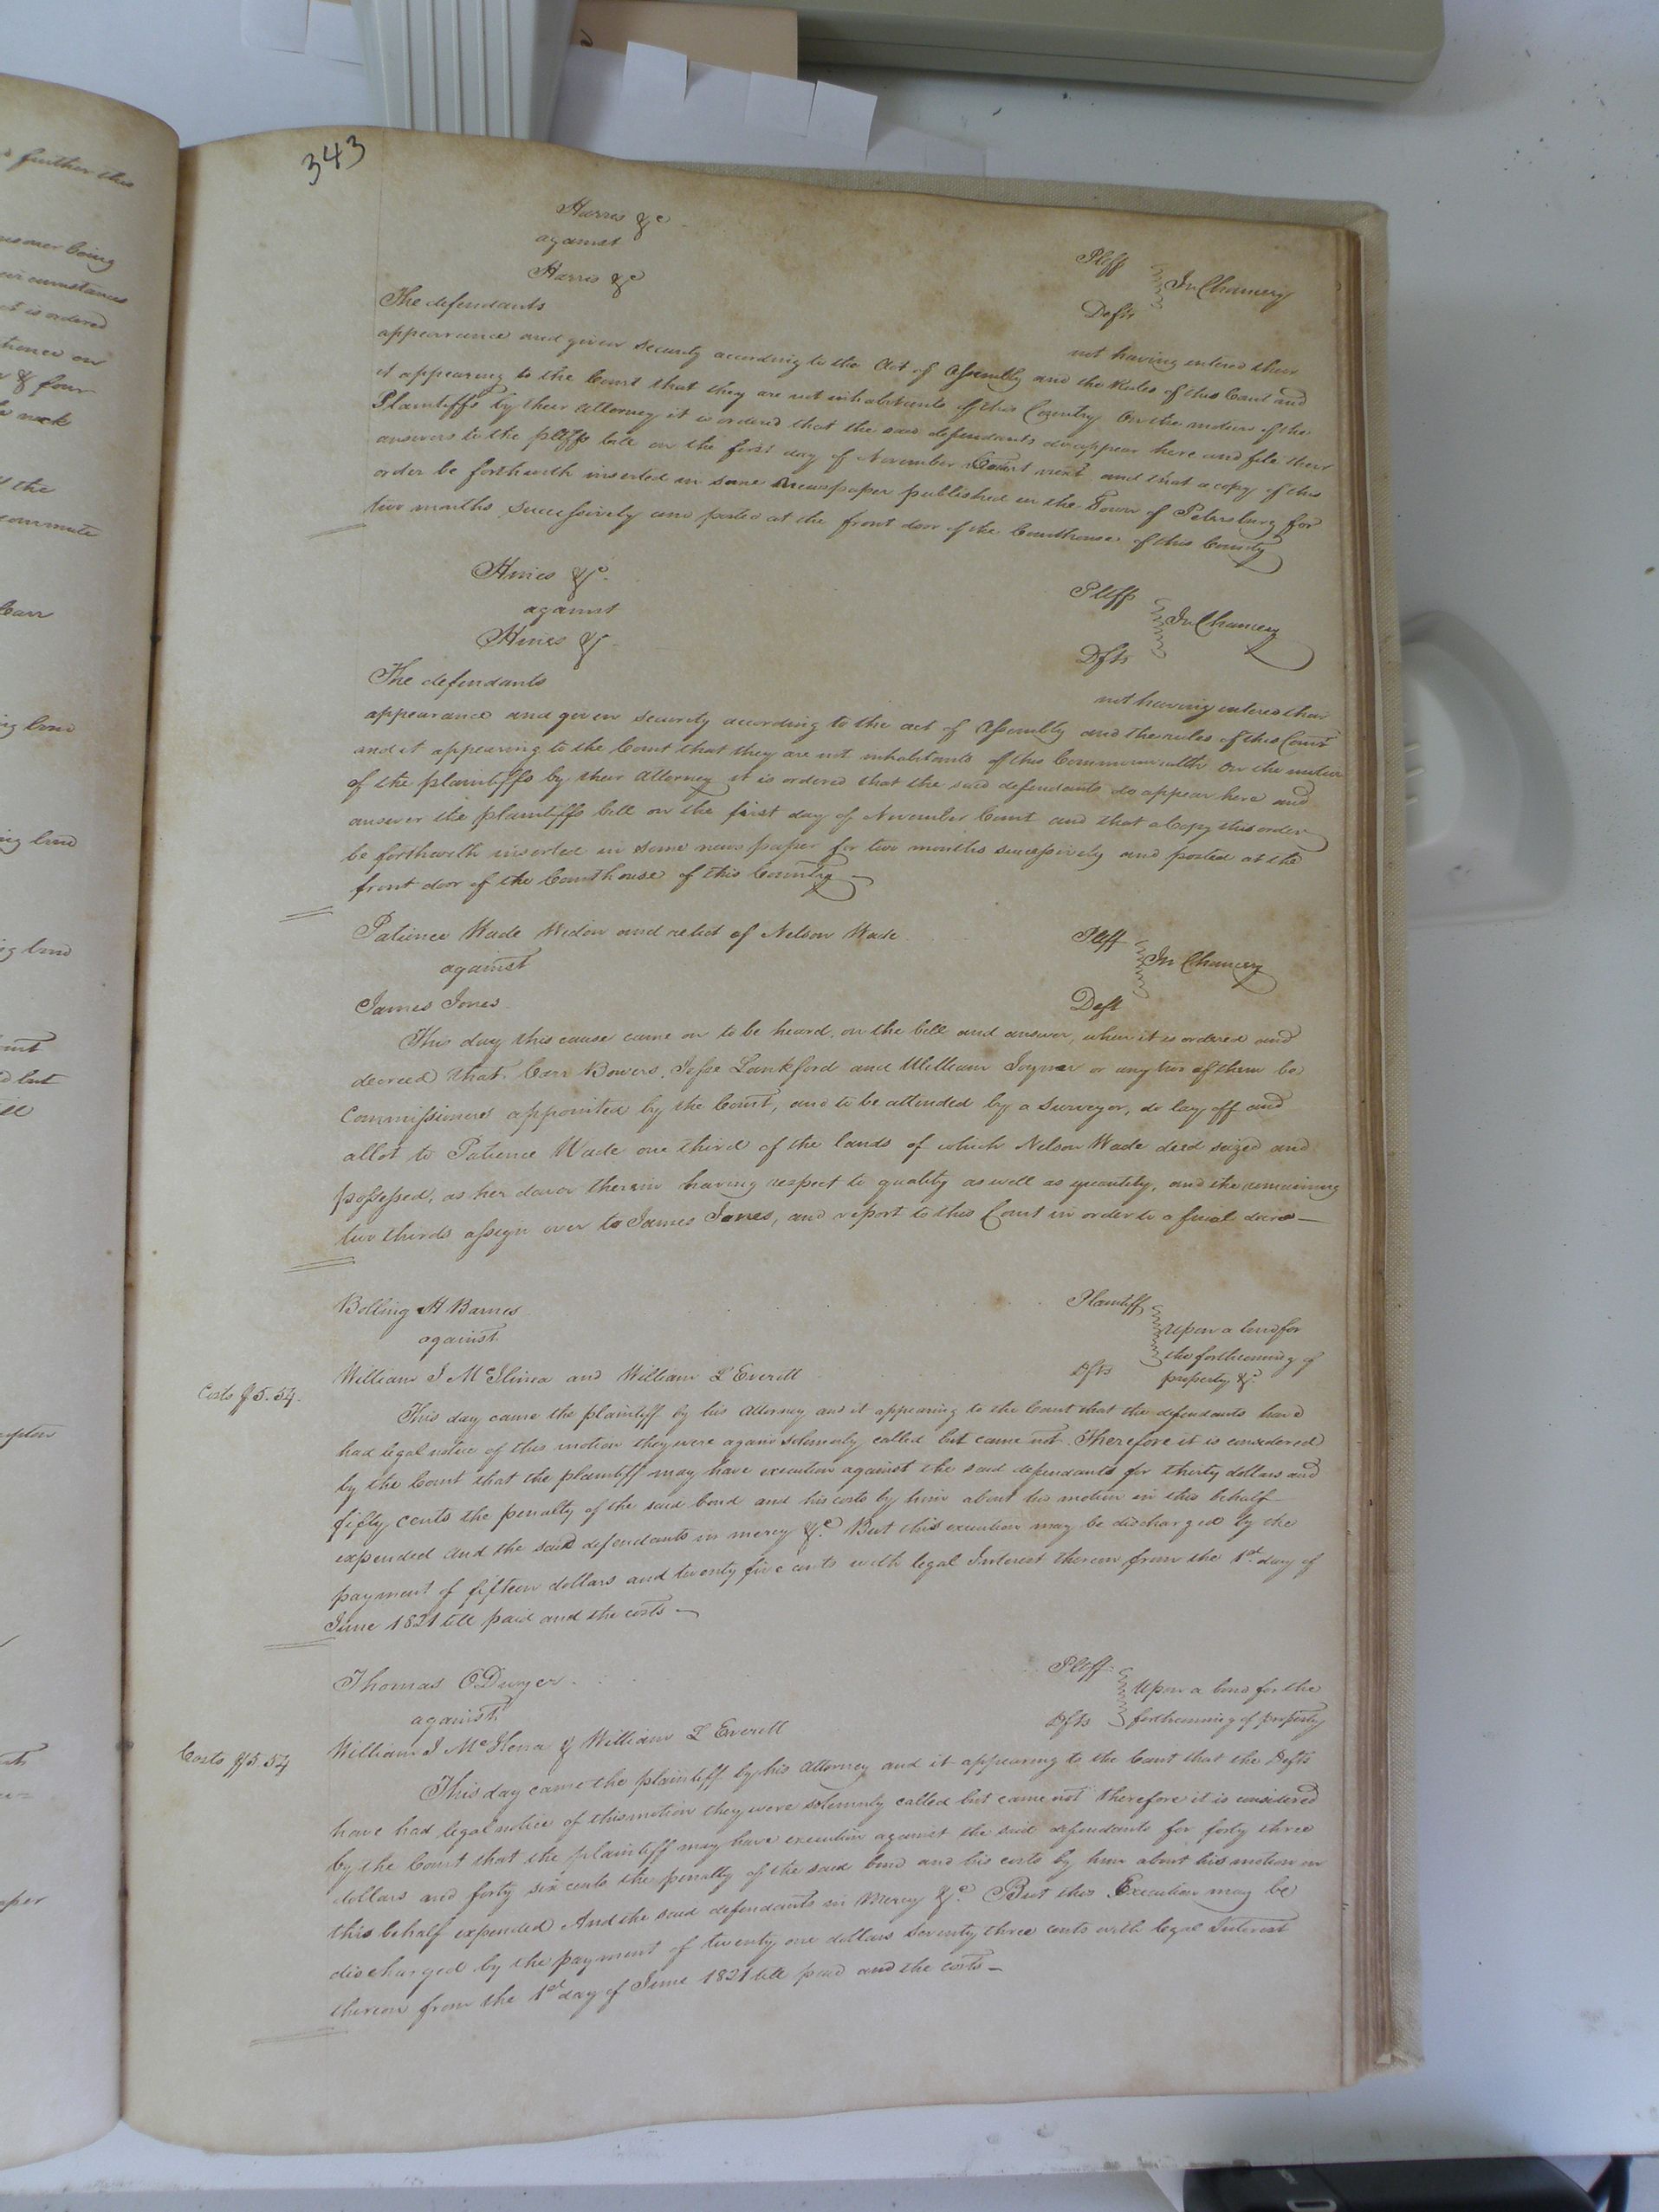 343
Harris &c
against
Harris &c
Pltff
In Chancery
Defts
The defendants not having entered their
appearance and given security according to the Act of Assembly and the Rules of this Court and
it appearing to the Court that they are not inhabitants of this Country On the motion of the
Plaintiffs by their Attorney it is ordered that the said defendants do appear here and file their
answers to the pltffs bill on the first day of November Court next and that a copy of this
order be forthwith inserted in some Newspaper published in the Town of Petersburg for
two months successively and posted at the front door of the Courthouse of this County
Hines &c.
against
Hines &
Pltff
In Chancery
Dfts
The defendants not having entered their
appearance and given security according to the act of Assembly and the rules of this Court
and it appearing to the Court that they are not inhabitants of this Commonwealth On the motion
of the plaintiffs by their Attorney it is ordered that the said defendants do appear here and
answer the plaintiffs bill on the first day of November Court and that a Copy this order
be forthwith inserted in some news paper for two months successively and posted at the
front door of the Courthouse of this Country
Patience Wade Widow and relict of Nelson Wade Pltff
against In Chancery
James Jones Deft
This day this cause came on to be heard, on the bill and answer, when it is ordered and
decreed that Carr Bowers, Jesse Lankford and William Joyner or any two of them be
Commissioners appointed by the Court, and to be attended by a Surveyor, do lay off and
allot to Patience Wade one third of the lands of which Nelson Wade died seized and
possessed, as her dower therein having respect to quality as well as quantity, and the remaining
two thirds assign over to James Jones, and report to this Court in order to a final decree
Bolling H Barnes Plaintiff
against Upon a bond for
the forthcoming of
William J McIlinea and William L Everitt Dfts property &c.
Costs $5.54.
This day came the plaintiff by his Attorney and it appearing to the Court that the defendants have
had legal notice of this motion they were again solemnly called but came not Therefore it is considered
by the Court that the plaintiff may have execution against the said defendants for thirty dollars and
fifty cents the penalty of the said bond and his costs by him about his motion in this behalf
expended and the said defendants in mercy &c. But this execution may be discharged by the
payment of fifteen dollars and twenty five cents with legal Interest thereon from the 1st day of
June 1821 till paid and the costs
Thomas ODwyer Pltff
against Upon a bond for the
forthcoming of property
William J McIlena & William L Everitt Dfts
Costs $5.54
This day came the plaintiff by his Attorney and it appearing to the Court that the Defts
have had legal notice of this motion they were solemnly called but came not therefore it is considered
by the Court that the plaintiff may have execution against the said defendants for forty three
dollars and forty six cents the penalty of the said bond and his costs by him about his motion in
this behalf expended And the said defendants in Mercy &c. But this Execution may be
discharged by the payment of twenty one dollars seventy three cents with legal Interest
thereon from the 1st day of June 1821 till paid and the costs